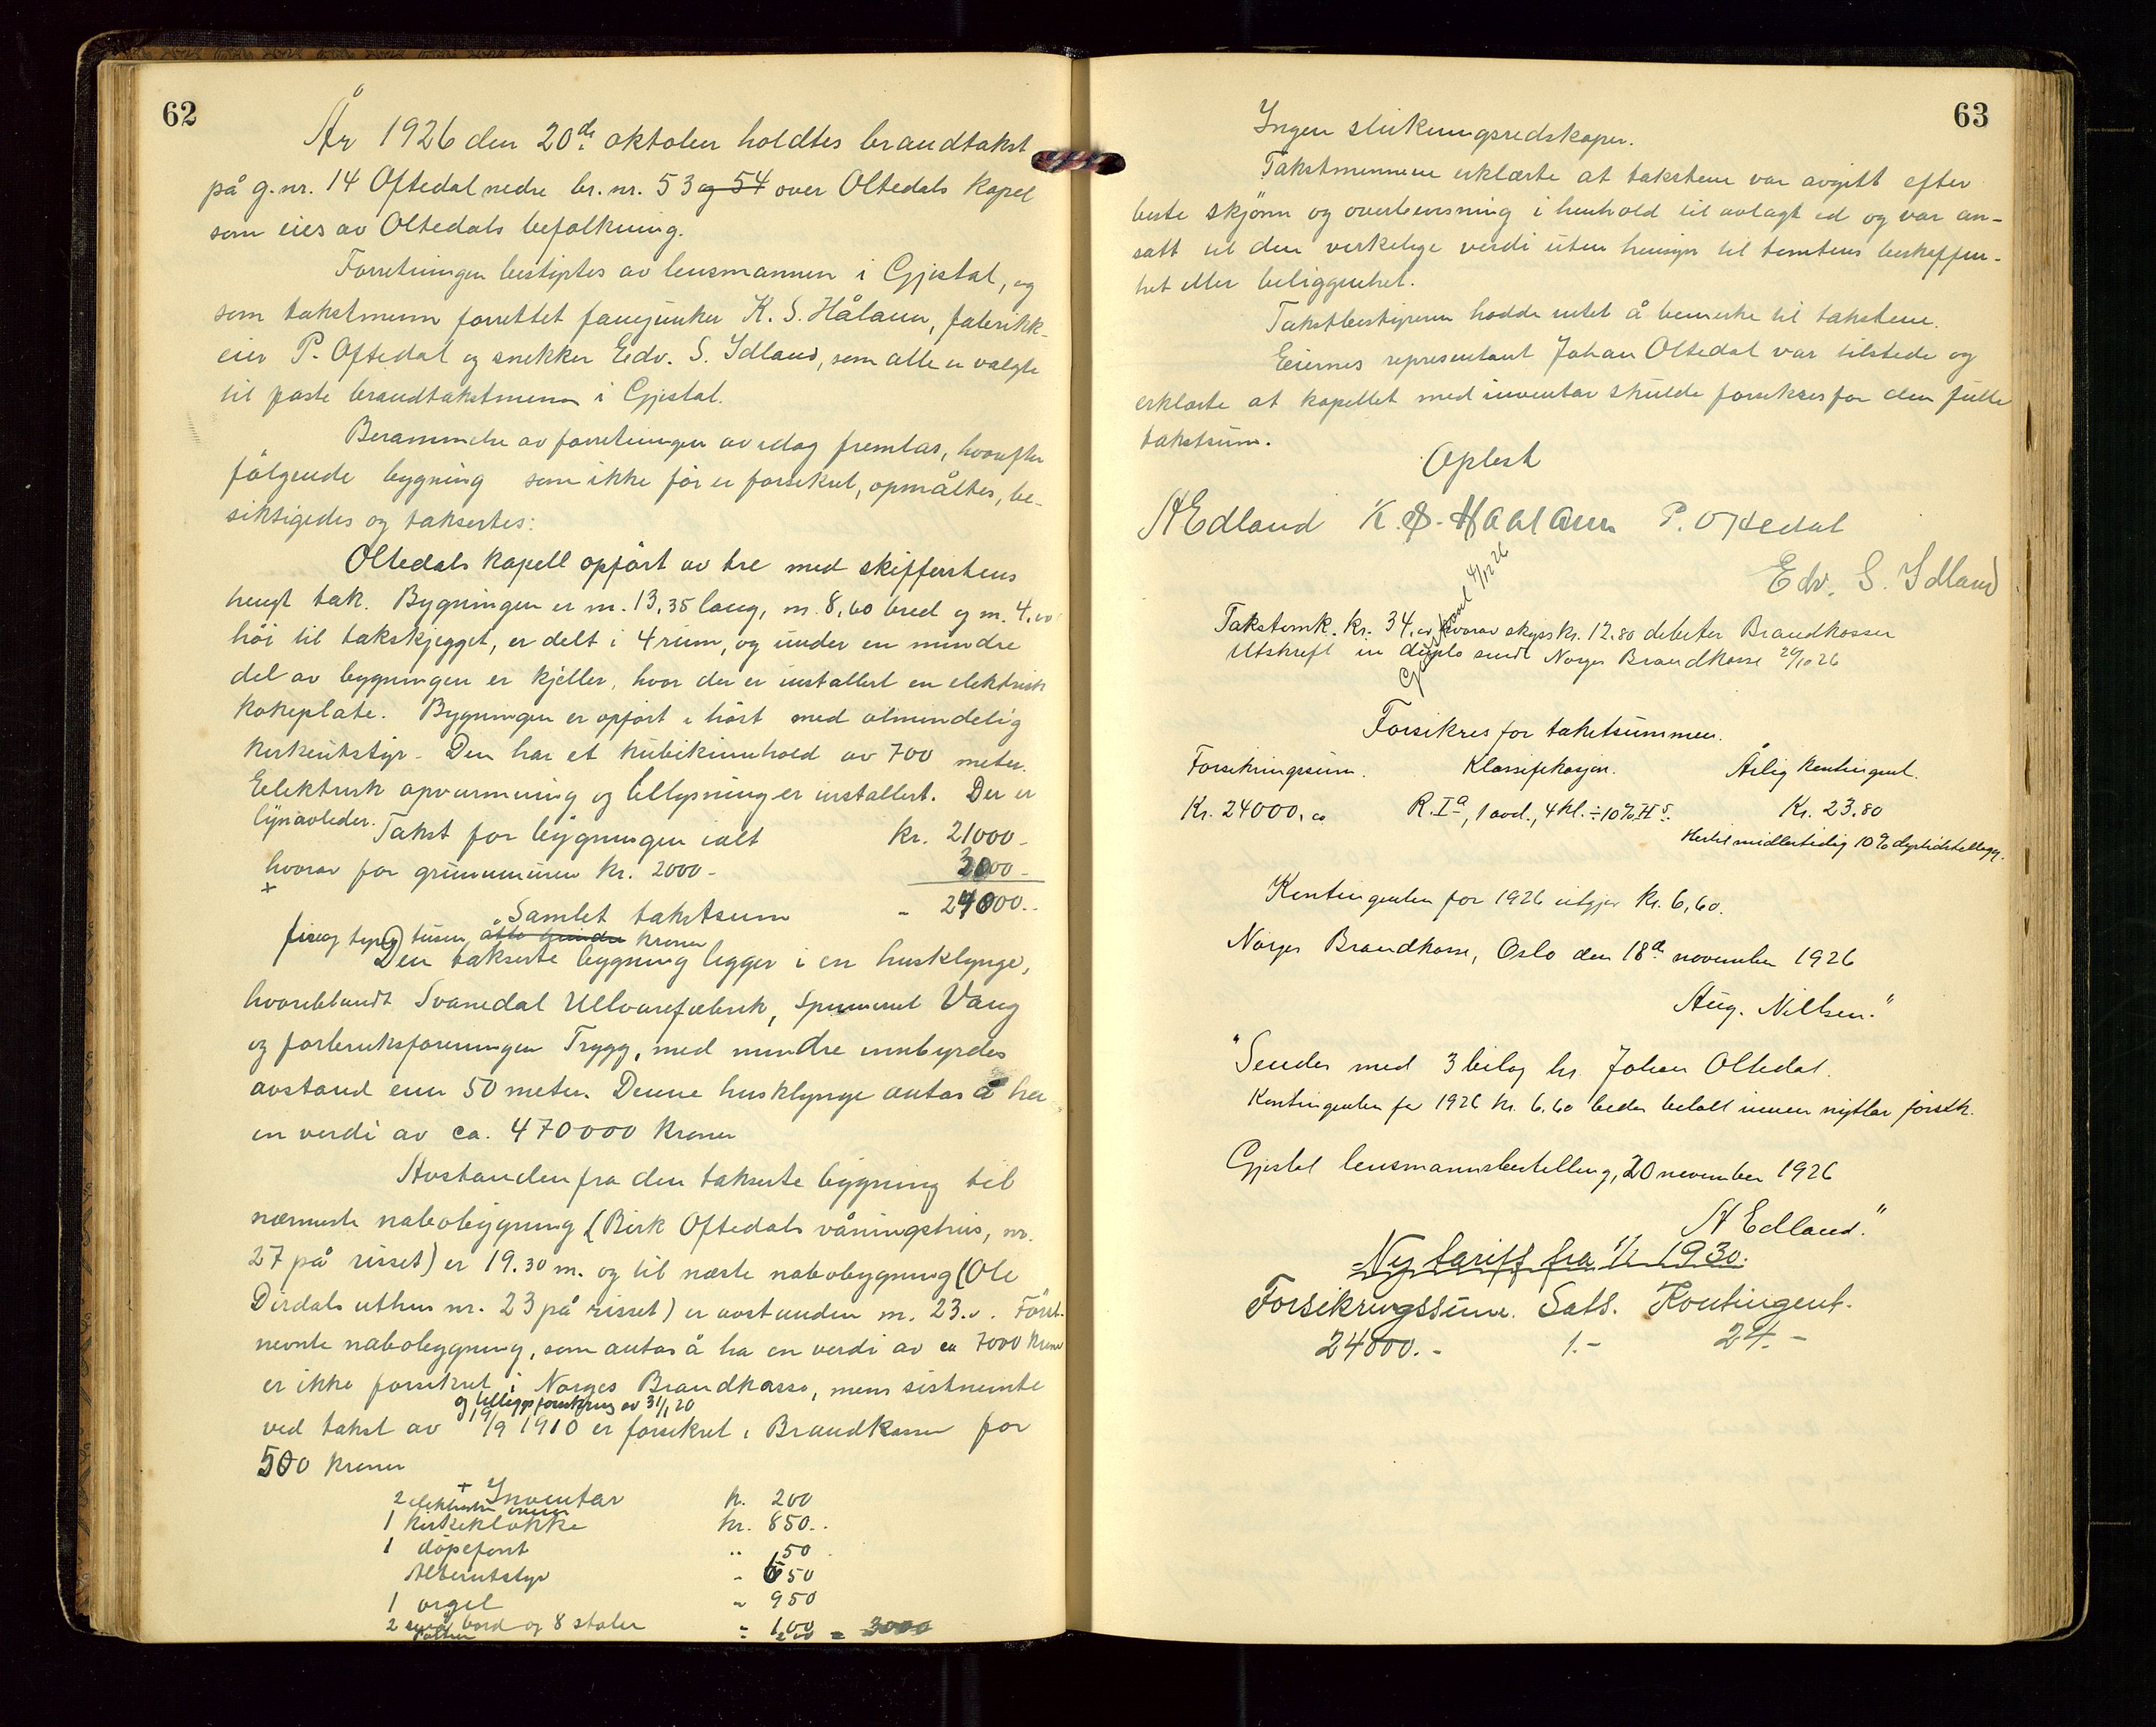 62
År 1926 den 20de oktober holdtes brandtakst
på g.nr. 14 Oftedal nedre br.nr. 53 og 54 over Oltedals Kapel
som eies av Oltedals befolkning.
Forretningen bestyrtes av lensmannen i Gjestal, og
som takstmenn forrettet fanejunker K. S. Håland, fabrikk-
eier P. Oftedal og snekker Edv. S. Idland, som alle er valgte
til faste brandtakstmenn i Gjestal.
Berammelse av forretningen av idag fremlas, hvorefter
følgende bygning som ikke før er forsikret, opmåltes, be-
siktigedes og taksertes:
Oltedals Kapell opført av tre med skifferstens
hengt tak. Bygningen er m. 13,35 lang, m. 8,60 bred og m. 4,00
høi til takskjegget, er delt i 4 rum, og under en mindre
del av bygningen er kjeller, hvor der er installert en elektrisk
kokeplate. Bygningen er opført i høst med almindelig
kirkeutstyr. Den har et kubikinnehold av 700 meter.
Elektrisk opvarmning og bellysning er installert. Der er
lynavleder.
Takst for bygningen ialt kr. 21000-
hvorav for grunnmuren kr. 2000- 3000-
+
Samlet takstsum - 24000..
fireog tyve tusen åtte hundre kroner
Den takserte bygning ligger i en husklynge,
hvoriblandt Svanedal Ullvarefabrik, Spinneriet Vang
og forbruksforeningen Trygg, med mindre innbyrdes
avstand enn 50 meter. Denne husklynge antas å ha
en verdi av ca. 470000 kroner
Avstanden fra den takserte bygning til
nærmeste nabobygning (Birk Oftedals våningshus, nr.
27 på risset) er 19.30 m. og til næste nabobygning (Ole
Dirdals uthus nr. 23 på risset) er avstanden m. 23.0. Først-
nevnte nabobygning, som antas å ha en verdi av ca 7000 kroner
er ikke forsikret i Norges Brandkasse, mens sistnevnte
og tilleggsforsikring av 31/1 20
ved takst av 19/9 1910 er forsikret i Brandkassen for
500 kroner
+ Inventar
2 elektriske ovner k. 200
1 kirkeklokke kr. 850..
1 døpefont .. 50
Alterutstyr - 650
1 orgel - 950
2 små bord og 8 stoler - 100
200 = 3000
63
Ingen slukningsredskaper.
Takstmennene erklærte at takstene var avgitt efter
beste skjønn og overbevisning i henhold til avlagt ed og var an-
satt til den verkelige verdi uten hensyn til tomtens beskaffen-
het eller beliggenhet.
Takstbestyreren hadde intet å bemerke til takstene.
Eiernes representant Johan Oltedal var tilstede og
erklærte at kapellet med inventar skulde forsikres for den fulle
takstsum.
Oplest
A Edland K. S. Haaland P. Oftedal
Edv. S. Idland
4/12 26
Takstomk. kr. 34,00 hvorav skyss kr. 12.80 debiter Brandkassen
Utskrift in duplo sendt Norges Brandkasse 20/10 26
Forsikres for takstsummen.
Forsikringssum. Klassifikasjon. Årlig kontingent.
Kr. 24000,00 R.Ia, 1 avd., 4 kl. ÷ 10% Hs. Kr. 23.80
Hertil midlertidig 10% dyrtidstillegg.
Kontingenten for 1926 utgjør kr. 6,60.
Norges Brandkasse, Oslo den 18de november 1926
Aug. Nilsen."
"Sendes med 3 bilag hr. Johan Oltedal.
Kontingenten for 1926 kr. 6.60 bedes betalt innen nyttår førstk.
Gjestal lensmannsbestilling, 20 november 1926
A Edland."
Ny tariff fra 1/1 1930.
Forsikringssum. Sats. Kontingent.
24000.- 1.- 24.-